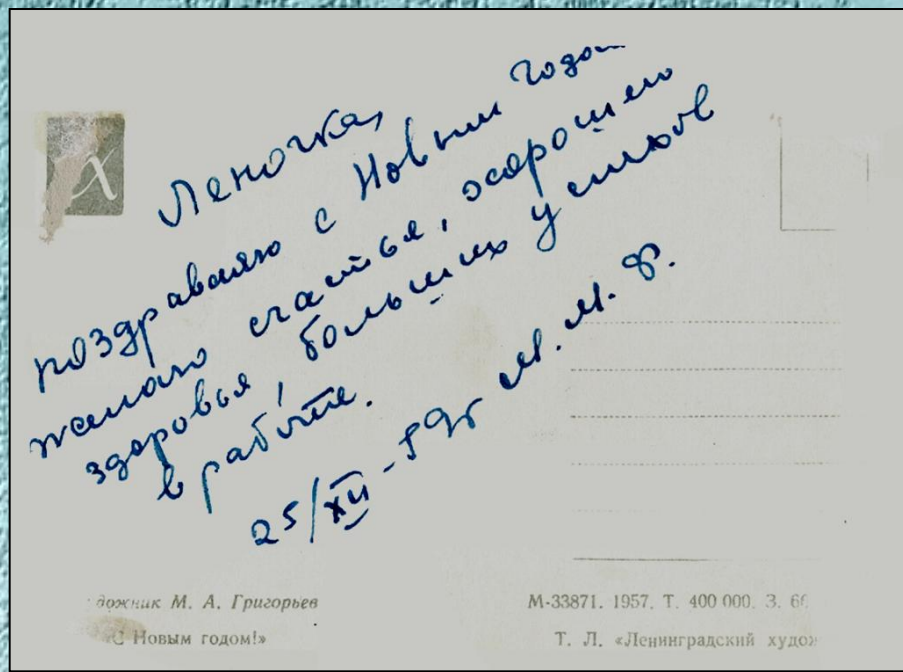 Леночка,
поздравляю с Новым годом
желаю счастья, хорошего
здоровья, больших успехов
в работе.
25/XII-59г М. М. Ф.
дожник М. А. Григорьев
«С Новым годом!»
М-33871. 1957. Т. 400 000. З. 66
Т. Л. «Ленинградский худож